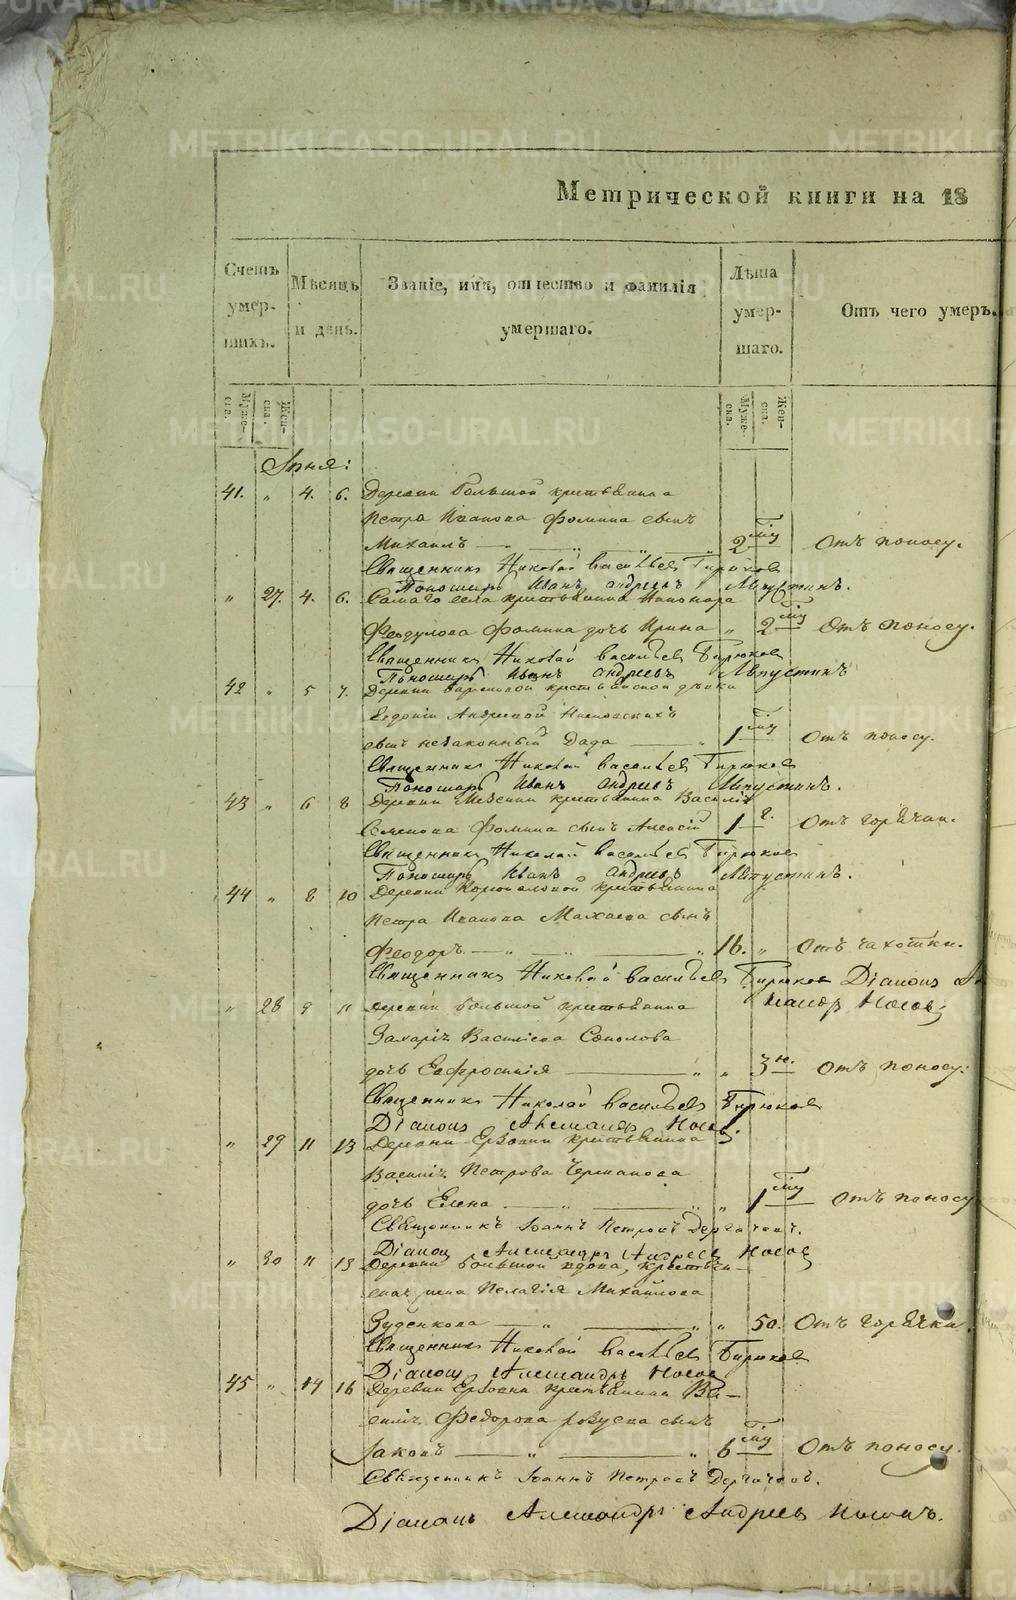 METRIKI.GASO-URAL.RU
Метрической книги на 18
Счетъ умер- шихъ.
Мѣсяцъ и день.
Званіе, имя, отчество и фамилія умершаго.
Лѣта умер- шаго.
Отъ чего умеръ.
Муже- ска. Жен- ска.
Муже- ска. Жен- ска.
Іюня:
41. „ 4. 6. Деревни Большой крестьянина
Петра Иванова Фомина сынъ
Михаилъ — „ — „ 2 Отъ поносу.
Священникъ Николай Васильевъ Бирюковъ
Пономарь Иванъ Андреевъ Августинъ.
„ 27. 4. 6. Самаго села крестьянина
Феодулова Фомина дочь Ирина „ 2 Отъ поносу.
Священникъ Николай Васильевъ Бирюковъ
Пономарь Иванъ Андреевъ Августинъ
42 „ 5 7. Деревни крестьянской дѣвки
Евдокіи Андреевой
сынъ незаконный — „ 1 Отъ поносу.
Священникъ Николай Васильевъ Бирюковъ
Пономарь Иванъ Андреевъ Августинъ.
43 „ 6 8 Деревни крестьянина Василія
Семенова Фомина сынъ Алексій 1 Отъ горячки.
Священникъ Николай Васильевъ Бирюковъ
Пономарь Иванъ Андреевъ Августинъ.
44 „ 8 10 Деревни крестьянина
Петра Иванова сынъ
Феодоръ — „ — „ 16. „ Отъ чахотки.
Священникъ Николай Васильевъ Бирюковъ Діаконъ
Носовъ
„ 28 9 11 Деревни Большой крестьянина
Захаріи Васильева Соколова
дочь Евфросинія — „ „ 3 н. Отъ поносу.
Священникъ Николай Васильевъ Бирюковъ
Діаконъ Александръ Носовъ
„ 29 11 13 Деревни крестьянина
Василія Петрова
дочь Елена — „ — „ „ 1 Отъ поносу
Священникъ Іоаннъ Петровъ Дергачевъ.
Діаконъ Александръ Андреевъ Носовъ
„ 30 11 13 Деревни Большой вдова, крестьян-
ская жена Пелагія Михайлова
Зуденкова — „ — „ „ 50. Отъ горячки.
Священникъ Николай Васильевъ Бирюковъ
Діаконъ Александръ Носовъ
45 „ 14 16 Деревни крестьянина Ва-
силія Федорова сынъ
Іаковъ — „ — „ 6 Отъ поносу.
Священникъ Іоаннъ Петровъ Дергачевъ.
Діаконъ Александръ Андреевъ Носовъ.